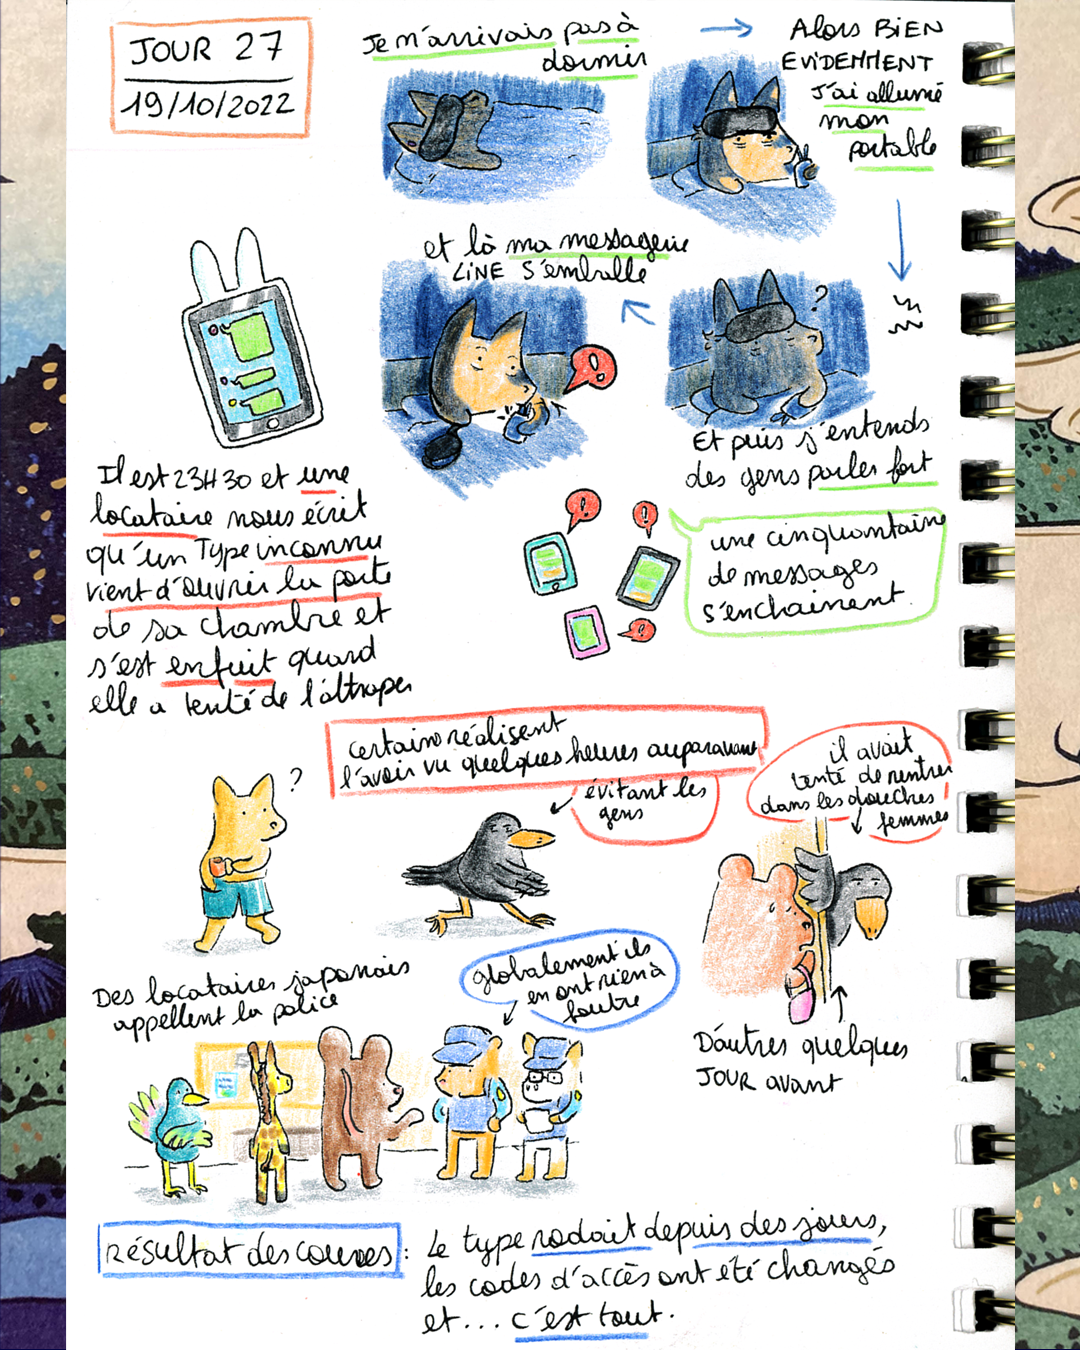 JOUR 27
19/10/2022
Je n'arrivais pas à
dormir
Alors BIEN
EVIDEMMENT
J'ai allumé
mon
portable
?
Et puis j'entends
des gens parler fort
et là ma messagerie
LINE s'emballe
!
Il est 23H30 et une
locataire nous écrit
qu'un Type inconnu
vient d'ouvrir la porte
de sa chambre et
s'est enfuit quand
elle a tenté de l'attraper
!
!
!
une cinquantaine
de messages
s'enchainent.
certains réalisent
l'avoir vu quelques heures auparavant
évitant les
gens
?
il avait
tenté de rentrer
dans les douches
femmes
D'autres quelques
JOUR avant
Des locataires japonais
appellent la police
globalement ils
en ont rien à
foutre
résultat des courses :
Le type rodait depuis des jours,
les codes d'accès ont été changés
et... c'est tout.